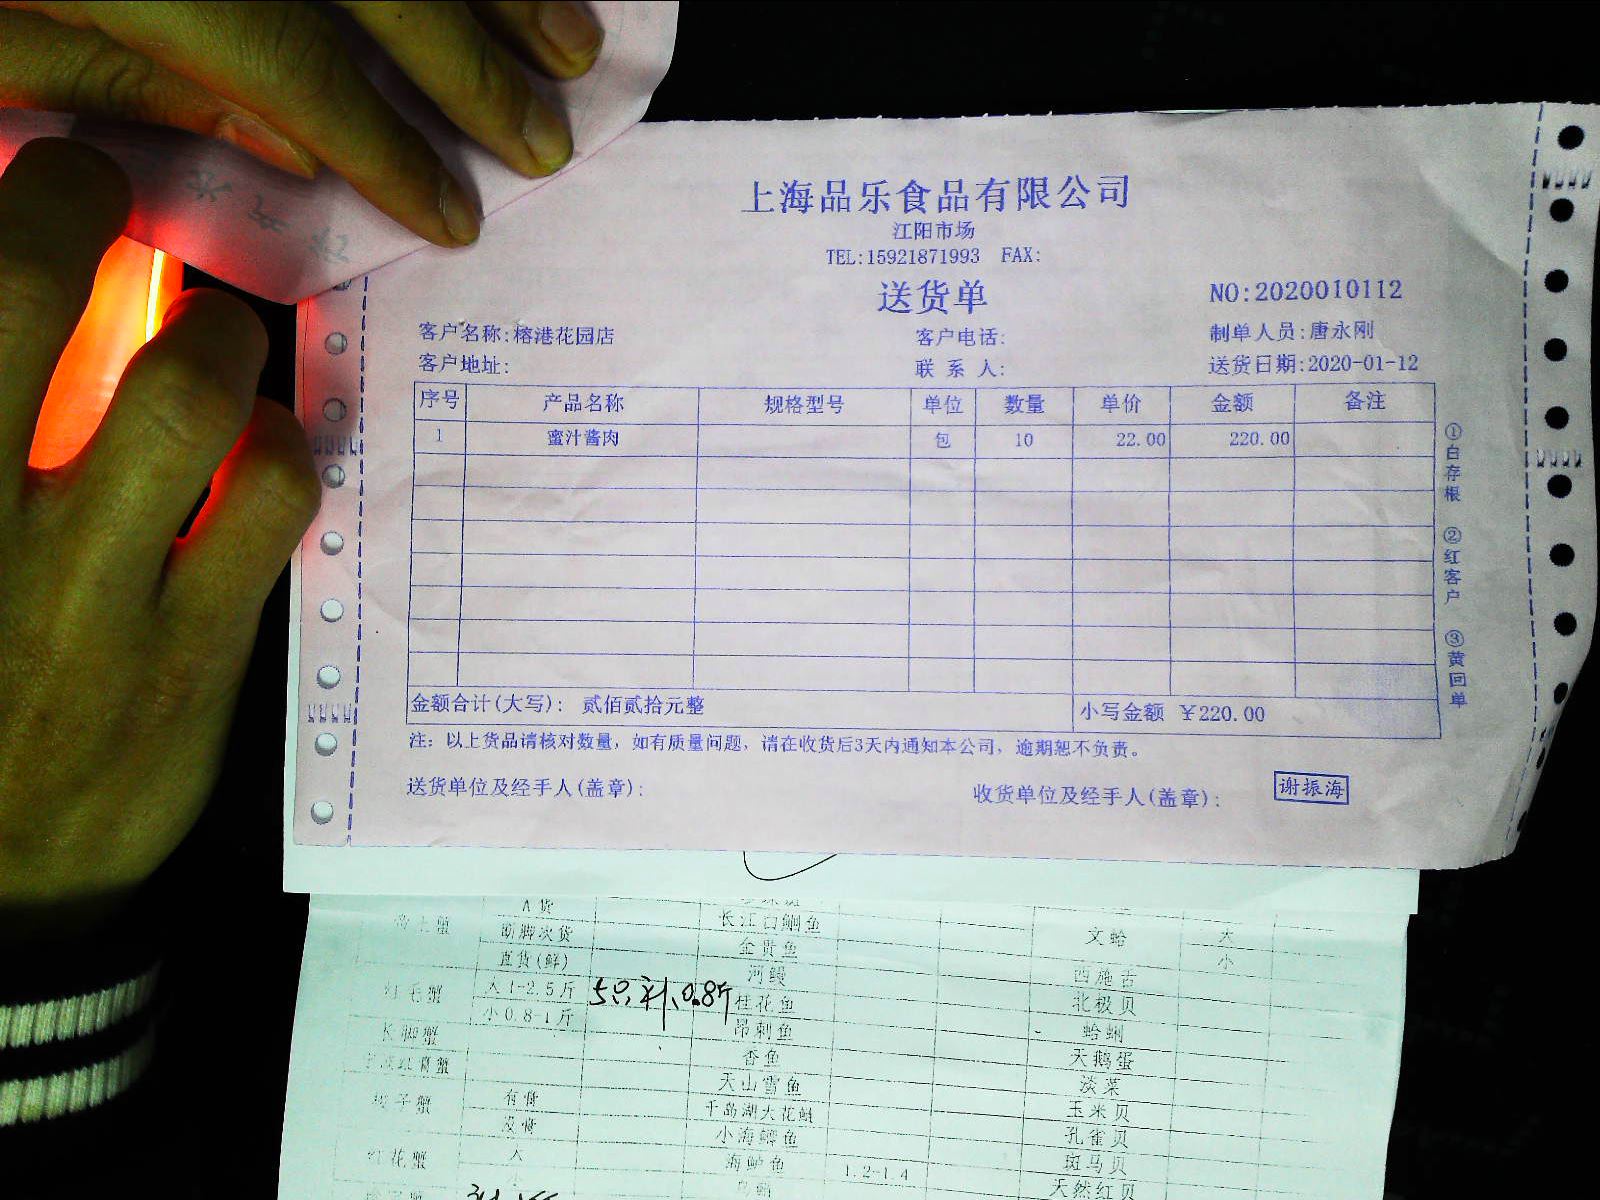 上海品乐食品有限公司
江阳市场
TEL:15921871993 FAX:
送货单
NO:2020010112
客户名称:榕港花园店 客户电话: 制单人员:唐永刚
客户地址: 联 系 人: 送货日期:2020-01-12
序号 产品名称 规格型号 单位 数量 单价 金额 备注
1 蜜汁酱肉 包 10 22.00 220.00
金额合计(大写): 贰佰贰拾元整 小写金额 ￥220.00
注: 以上货品请核对数量, 如有质量问题, 请在收货后3天内通知本公司, 逾期恕不负责。
送货单位及经手人(盖章): 收货单位及经手人(盖章): 谢振海
①白存根 ②红客户 ③黄回单
A货
断脚次货 长江口鮰鱼 文蛤 大
直货(鲜) 金贵鱼 小
河鳗 西施舌
红毛蟹 大1-2.5斤 桂花鱼 北极贝
小0.8-1斤 昂刺鱼 蛤蜊
长脚蟹 香鱼 天鹅蛋
天山雪鱼 淡菜
有膏 千岛湖大花鲢 玉米贝
没膏 小海鲫鱼 孔雀贝
红花蟹 大 海鲈鱼 1.2-1.4 斑马贝
小 天然红贝